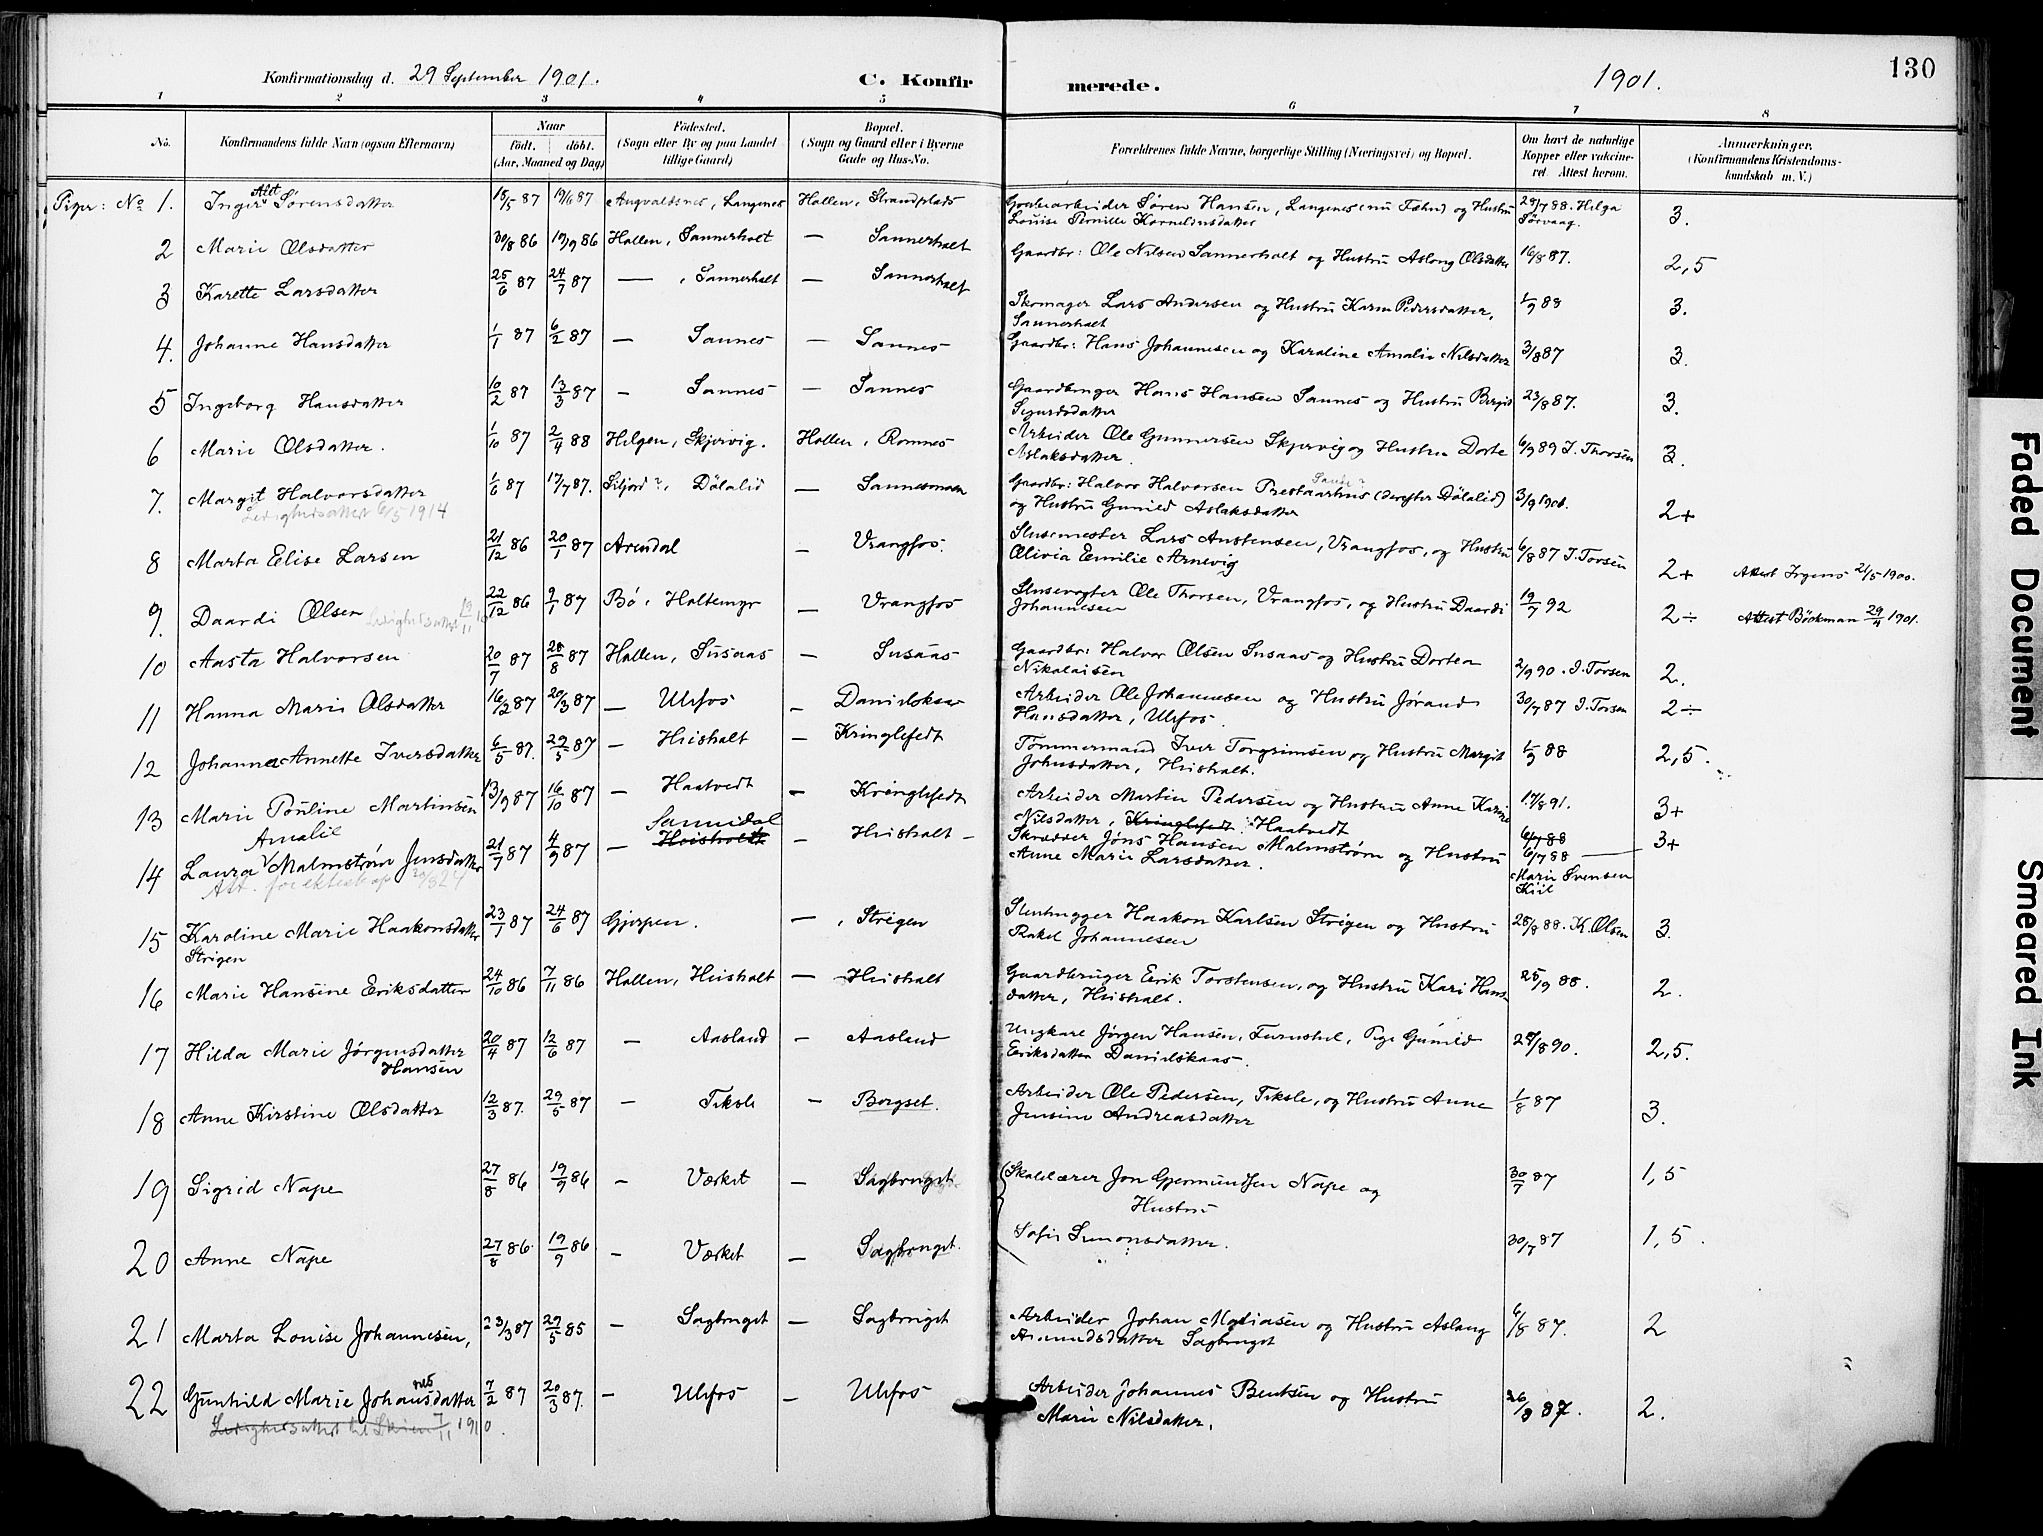 Konfirmationsdag d. 29 September 1901.
C. Konfirmerede.
1901.
130
1 2 3 4 5 6 7 8
No.
Konfirmandens fulde Navn (ogsaa Efternavn)
Naar
født. døbt.
(Aar, Maaned og Dag)
Fødested.
(Sogn eller By og paa Landet
tillige Gaard)
Bopæl.
(Sogn og Gaard eller i Byerne
Gade og Hus-No.
Forældrenes fulde Navne, borgerlige Stilling (Næringsvei) og Bopæl.
Om havt de naturlige
Kopper eller vakcine-
ret Attest herom.
Anmærkninger.
(Konfirmandens Kristendoms-
kundskab m. V.)
Piger: No 1. Inger Sørensdatter 15/5 87 19/6 87 Augvaldsnes, Langenes Hollen, Strandplads Søren Hansen, Langenes (nu Fæhn) og Hustru 29/7 88. Helga 3.
Louise Pernille Kornelinsdatter Sørvaag.
2 Marie Olsdatter 30/8 86 19/9 86 Hollen, Sannerholt — Sannerholt Gaardbr: Ole Nilsen Sannerholt og Hustru Aslong Olsdatter 16/8 87. 2,5
3 Karette Larsdatter 25/6 87 24/7 87 — , Sannerholt — Sannerholt Skomager Lars Andersen og Hustru Karen Pedersdatter, 1/9 88 3.
Sannerholt
4. Johanne Hansdatter 1/1 87 6/2 87 — Sannes — Sannes Gaardbr: Hans Johannesen og Karoline Amalie Nilsdatter 3/8 87 3.
5 Ingeborg Hansdatter 10/2 87 13/3 87 — Sannes — Sannes Gaardbruger Hans Hansen Sannes og Hustru Bergit 23/8 87. 3.
Sigurdsdatter
6 Marie Olsdatter. 1/10 87 2/4 88 Helgen, Skjervig. Hollen, Romnes Arbeider Ole Gunnersen Skjervig og Hustru Dorte 6/9 89 I. Thorsen 3.
Aslaksdatter.
7. Margit Halvorsdatter 1/6 87 17/7 87. Siljord?, Dølalid — Sannesmoen Gaardbr: Halvor Halvorsen Prestaarhus (derefter Dølalid) 3/9 1901. 2+
Ledighedsattest 6/5 1914 og Hustru Gunild Aslaksdatter
8 Marta Elise Larsen 21/12 86 20/1 87 Arendal — Vrangfos. Slusemester Lars Anstensen, Vrangfos, og Hustru 6/8 87 I. Torsen 2+ Attest Irgens 21/5 1900.
Olivia Emilie Arnevig
9. Daardi Olsen 22/12 86 9/1 87 Bø, Holtemyr — Vrangfos Slusevogter Ole Thorsen, Vrangfos, og Hustru Daardi 19/7 92 2÷ Attest Böckman 29/4 1901.
Johannesen
10 Aasta Halvorsen 20/7 87 28/8 87 Hollen, Susaas — Susaas Gaardbr: Halvor Olsen Susaas og Hustru Dortea 2/9 90. I. Torsen 2.
Nikolaisen
11 Hanna Marie Olsdatter 16/2 87 20/3 87 — Ulefos — Danielskaas Arbeider Ole Johannesen og Hustru Jørand 30/7 87 I. Torsen 2÷
Hansdatter, Ulefos.
12 Johanne Annette Iversdatter 6/5 87. 29/5 87 — Heisholt — Kringlefedt Tømmermand Iver Torgrimsen og Hustru Margit 1/9 88 2,5.
Johnsdatter, Heisholt.
13 Marie Pouline Martinsen 13/9 87 16/10 87 — Haatvedt — Kringlefedt Arbeider Martin Pedersen og Hustru Anne Karine 17/8 91. 3+
Nilsdatter, Kringlefedt. Haatvedt
14 Laura Amalie Malmstrøm Jensdatter 21/7 87 4/9 87 — Heisholt Sannidal — Heisholt Skrædder Jøns Hansen Malmstrøm og Hustru 6/7 88 3+
Att. for ekteskap 20/8 24 Anne Marie Larsdatter. 6/7 88
Marie Svensen
Kiil
15 Karoline Marie Haakonsdatter 23/1 87 24/6 87 Gjerpen. — , Strigen Stenhugger Haakon Karlsen Strigen og Hustru 28/8 88. K. Olsen 3.
Strigen Rakel Johannesen
16 Marie Hansine Eriksdatter 24/10 86 7/11 86 Hollen, Heisholt — Heisholt Gaardbruger Erik Torstensen, og Hustru Kari Hans- 25/9 88. 2.
datter, Heisholt.
17 Hilda Marie Jørgensdatter 20/4 87 12/6 87 — Aasland — Aasland Ungkarl Jørgen Hansen, Furustul, Pige Gunild 28/8 90. 2,5.
Hansen Eriksdatter Danielskaas.
18 Anne Kirstine Olsdatter 12/3 87. 29/5 87 — Teksle — Borgset. Arbeider Ole Pedersen, Teksle, og Hustru Anne 1/8 87 3.
Jensine Andreasdatter
19 Sigrid Nape 27/8 86 19/9 86 — Værket — Sagbruget Skolelærer Jon Gjermundsen Nape og 30/7 87 1,5
Hustru
20 Anne Nape 27/8 86 19/9 86 — Værket — Sagbruget. Sofie Simonsdatter. 30/7 87 1,5.
21 Marta Louise Johannesen, 23/3 87 29/5 85 — Sagbruget — Sagbruget Arbeider Johan Matiasen og Hustru Aslaug 6/8 87. 2
Amundsdatter Sagbruget
22 Gunhild Marie Johannesdatter 7/2 87 20/3 87. — Ulefos — Ulefos Arbeider Johannes Bentsen og Hustru 26/8 87. 2.
Ledighedsattest til Skien 7/11 1910. Marie Nilsdatter.
Faded Document
Smeared Ink